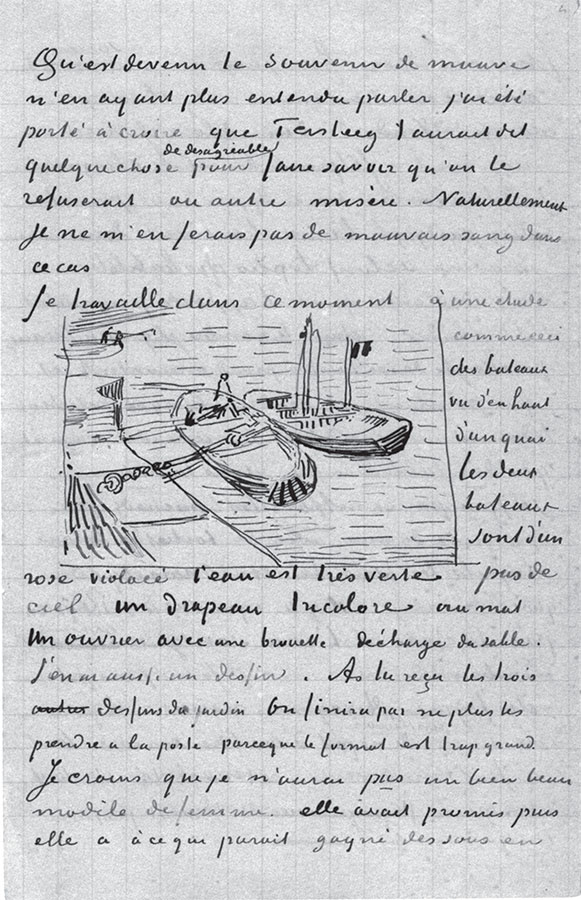 Qu'est devenu le souvenir de mauve
n'en ayant plus entendu parler j'ai été
porté à croire que Tersteeg t'aurait dit
de desagréable
quelque chose pour faire savoir qu'on le
refuserait ou autre misère. Naturellement
je ne m'en ferais pas de mauvais sang dans
ce cas
Je travaille dans ce moment à une etude
comme ceci
des bateaux
vu d'en haut
d'un quai
les deux
bateaux
sont d'un
rose violacé l'eau est très verte pas de
ciel un drapeau tricolore au mat
Un ouvrier avec une brouette décharge du sable.
J'en ai aussi un dessin. As tu reçu les trois
autres dessins du jardin On finira par ne plus les
prendre a la poste parceque le format est trop grand.
Je crains que je n'aurai pas un bien beau
modèle de femme. elle avait promis puis
elle a à ce que parait gagné des sous en